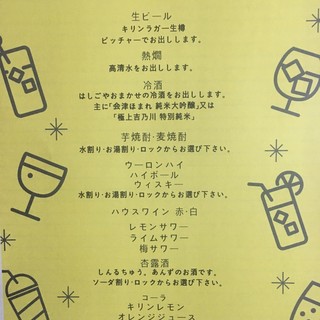 生ビール
キリンラガー生樽
ピッチャーでお出しします。
熱燗
高清水をお出しします。
冷酒
はしごやおまかせの冷酒をお出しします。
主に「会津ほまれ 純米大吟醸」又は
「極上吉乃川 特別純米」
芋焼酎・麦焼酎
水割り・お湯割り・ロックからお選び下さい。
ウーロンハイ
ハイボール
ウィスキー
水割り・お湯割り・ロックからお選び下さい。
ハウスワイン 赤・白
レモンサワー
ライムサワー
梅サワー
杏露酒
しんるちゅう。あんずのお酒です。
ソーダ割り・ロックからお選び下さい。
コーラ
キリンレモン
オレンジジュース